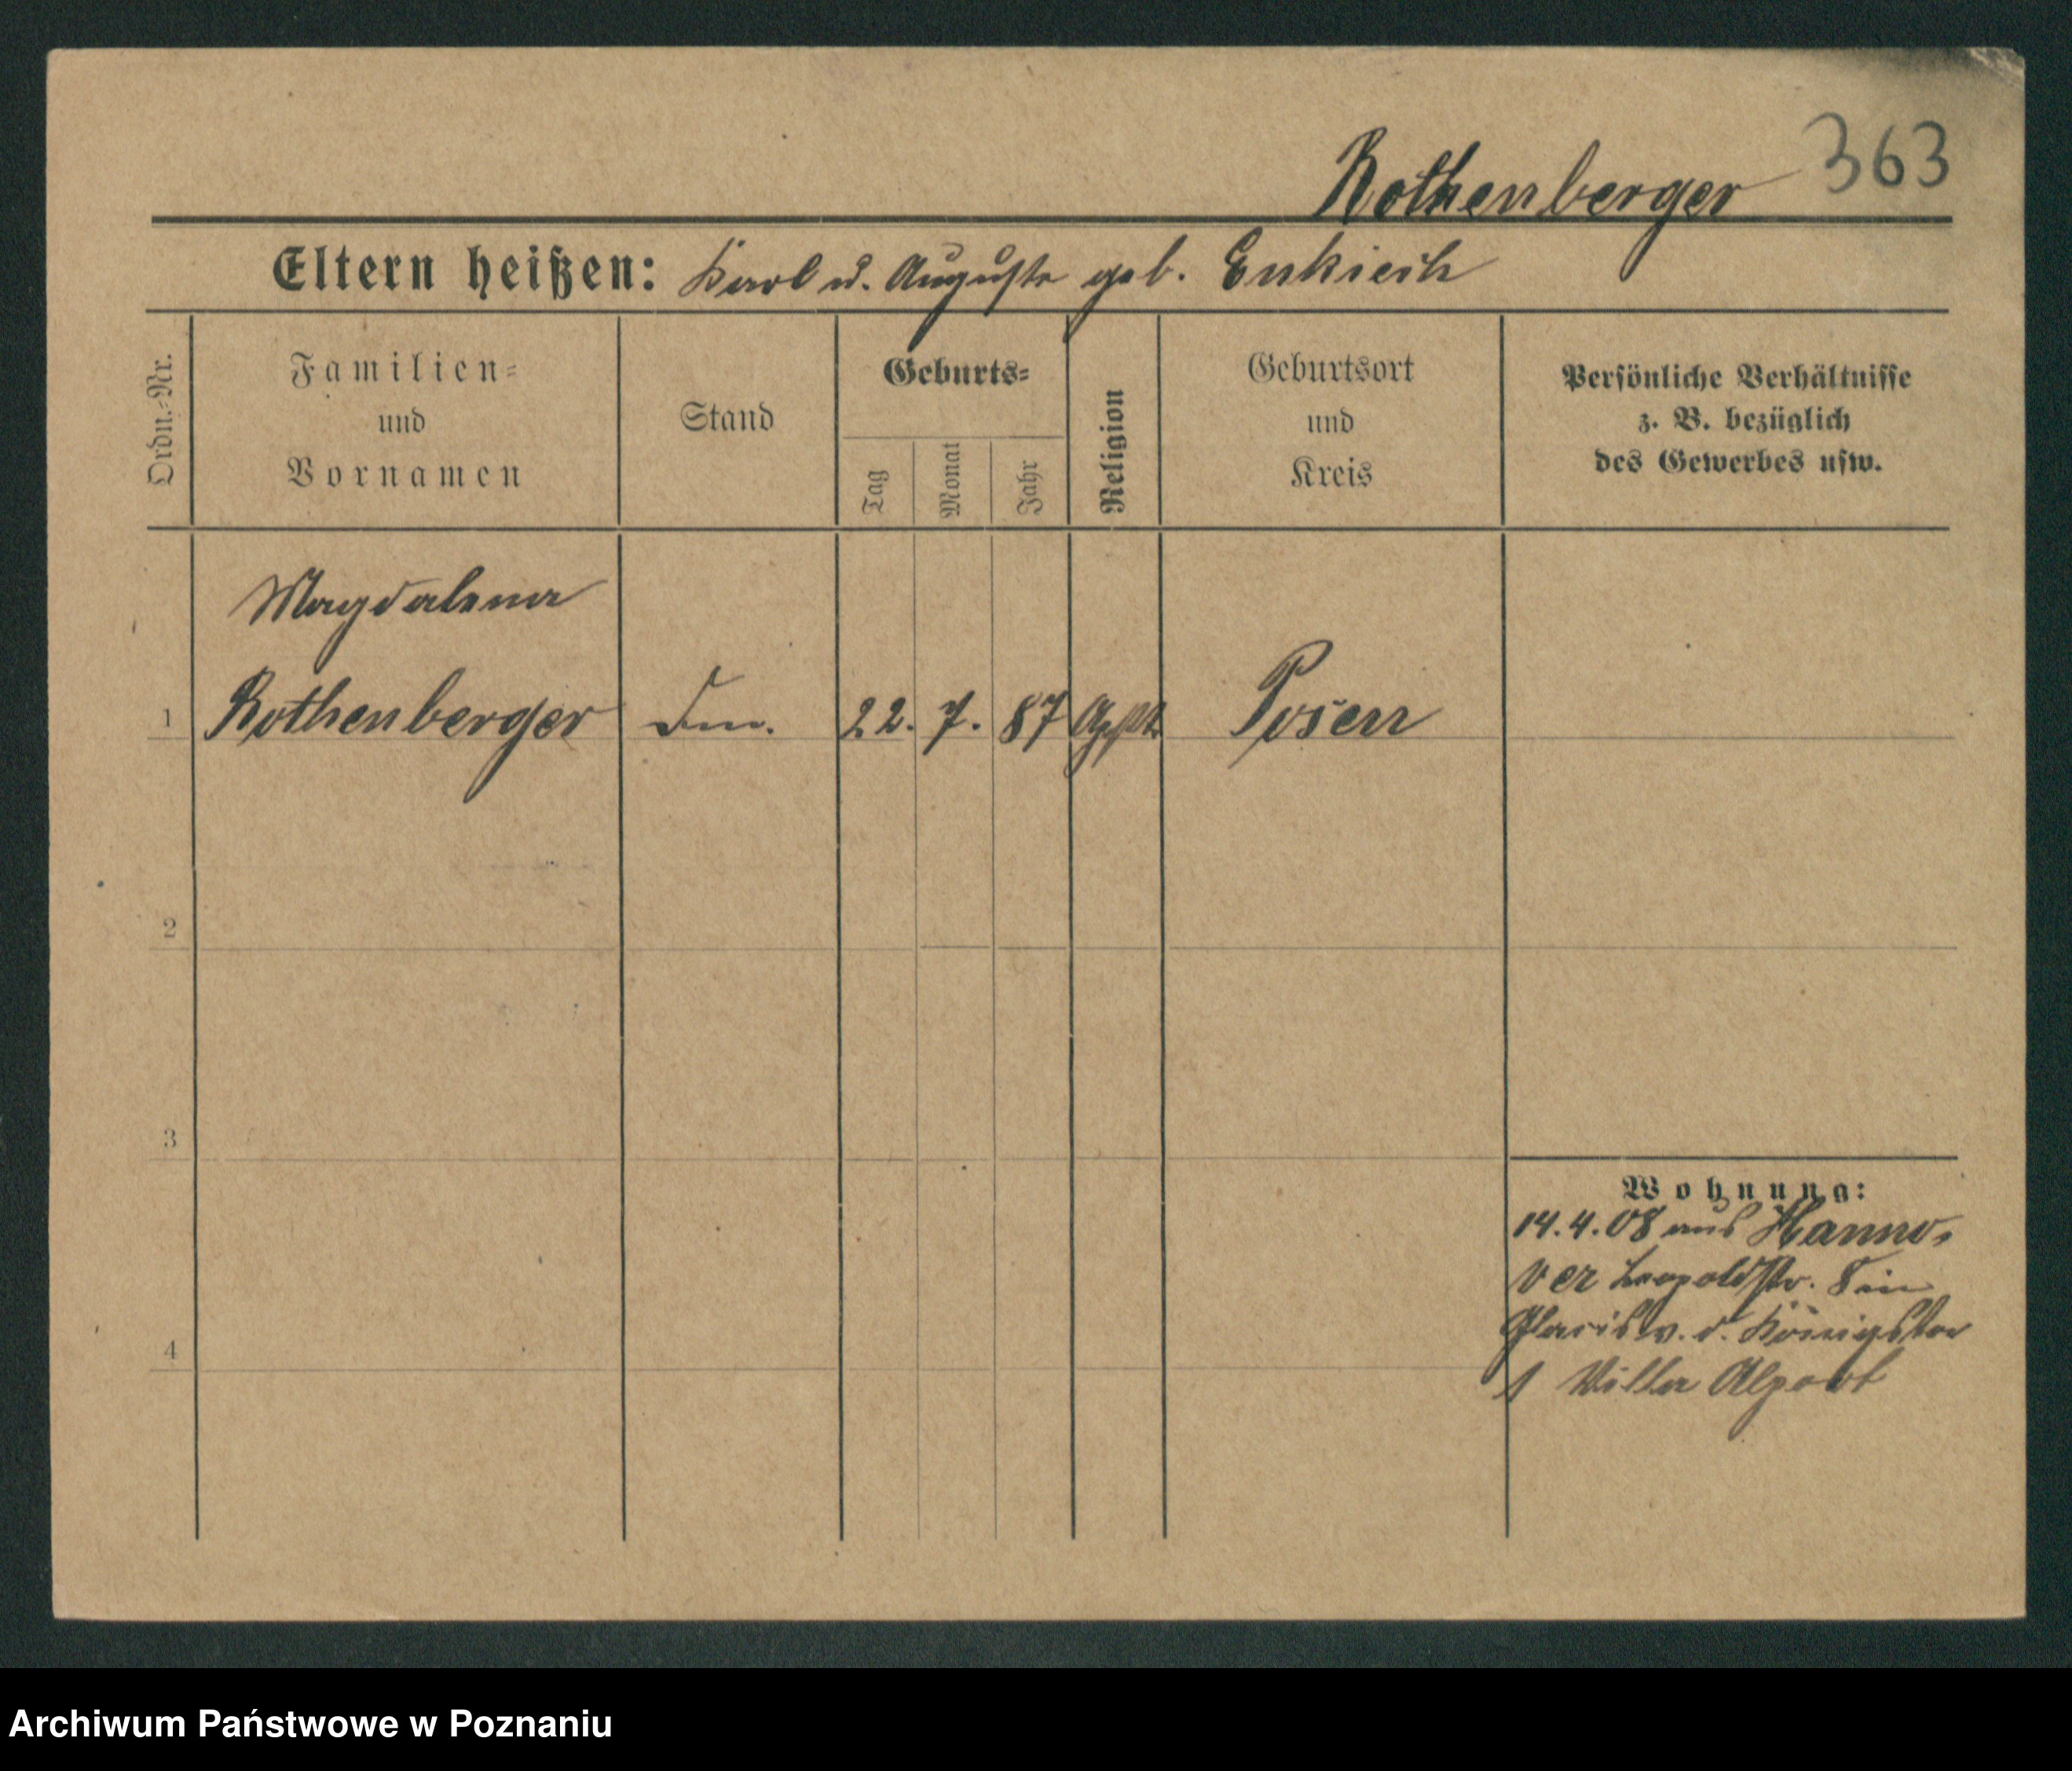 363
Rothenberger
Eltern heißen: Karl u. Auguste geb.
Ordn.-Nr.
Familien-
und
Vornamen
Stand
Geburts-
Tag
Monat
Jahr
Religion
Geburtsort
und
Kreis
Persönliche Verhältnisse
z. B. bezüglich
des Gewerbes usw.
Magdalena
1 Rothenberger 22. 7. 87 Posen
2
3
4
Wohnung:
14.4.08 aus Hanno-
ver Leopoldstr. 8 in
Glacis v. d. Königstor
1 Villa
Archiwum Państwowe w Poznaniu